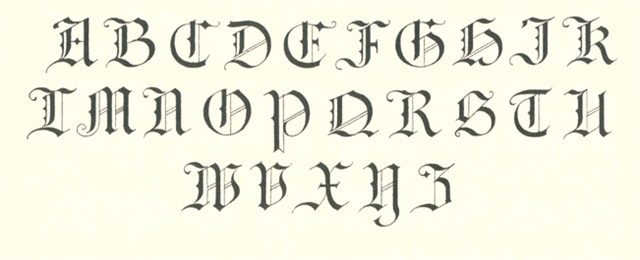 A B C D E F G H I K
L M N O P Q R S T U
W V X Y Z